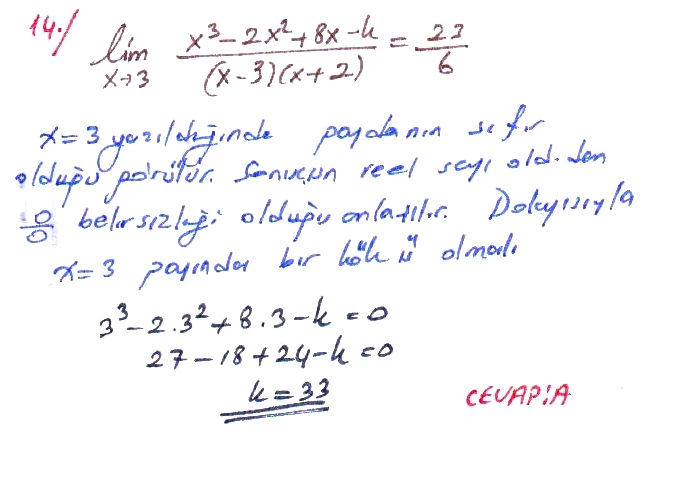 14./ lim x→3 x³-2x²+8x-k / (x-3)(x+2) = 23/6
x=3 yazıldığında paydanın sıfır
olduğu görülür. Sonucun reel sayı old.dan
0/0 belirsizliği olduğu anlaşılır. Dolayısıyla
x=3 payında bir kökü olmalı
3³-2.3²+8.3-k=0
27-18+24-k=0
k=33
CEVAP:A